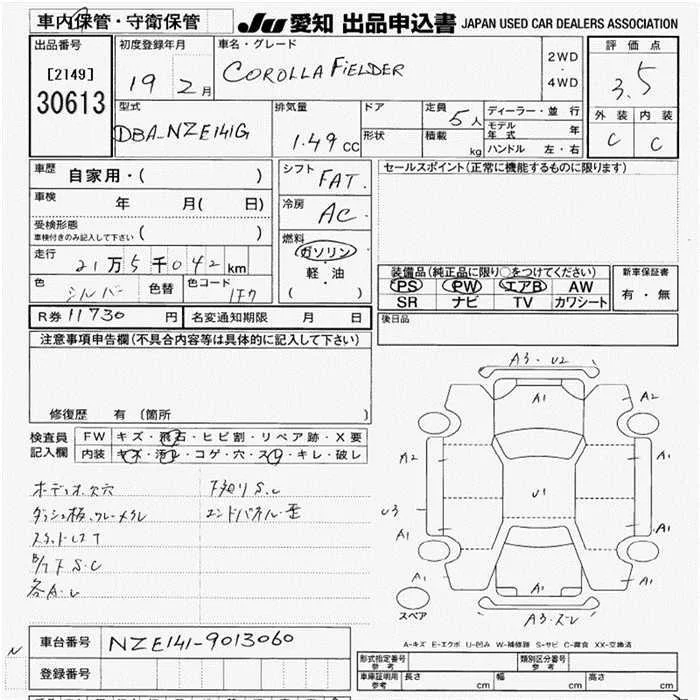 車内保管・守衛保管 JU 愛知 出品申込書 JAPAN USED CAR DEALERS ASSOCIATION
出品番号
[2149]
30613
初度登録年月
19 2月
車名・グレード
COROLLA FIELDER
2WD
・
4WD
評価点
3.5
外装 内装
C C
型式
DBA-NZE141G
排気量
1.49cc
ドア
形状
定員
5人
積載
kg
ディーラー・並行
モデル年式 年
ハンドル 左・右
車歴
自家用・( )
車検
年 月( 日)
受検形態
車検付きのみ記入して下さい ( )
走行
21万5千042km
色
シルバー
色替
色コード
1F7
シフト
FAT.
冷房
AC
燃料
ガソリン
・
軽・油
( )
セールスポイント(正常に機能するものに限ります)
装備品(純正品に限り○をつけてください)
PS PW エアB AW
SR ナビ TV カワシート
新車保証書
有・無
後日品
R券 11730 円
名変通知期限 月 日
注意事項申告欄(不具合内容等は具体的に記入して下さい)
修復歴 有 (箇所 )
検査員
記入欄
FW キズ・飛石・ヒビ割・リペア跡・X要
内装 キズ・汚レ・コゲ・穴・スレ・キレ・破レ
下廻り S.C
エンドパネル歪
B/ドア S.C
各A.U
A3・U2
A1
A2
A2
U1
U3
A1
A1
A1
A1
A1
A3・ズレ
スペア
A-キズ E-エクボ U-凹み W-補修跡 S-サビ C-腐食 XX-交換済
N
車台番号
NZE141-9013060
登録番号
形式指定番号
参考
類別区分番号
参考
車庫証明用
参考
長さ cm 幅 cm 高さ cm